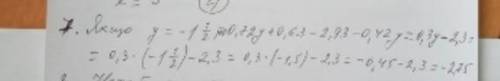 7. Якщо y = -1 1/2 то 0,72y+0,63-2,93-0,42y=0,3y-2,3=
=0,3·(-1 1/2)-2,3=0,3·(-1,5)-2,3=-0,45-2,3=-2,75